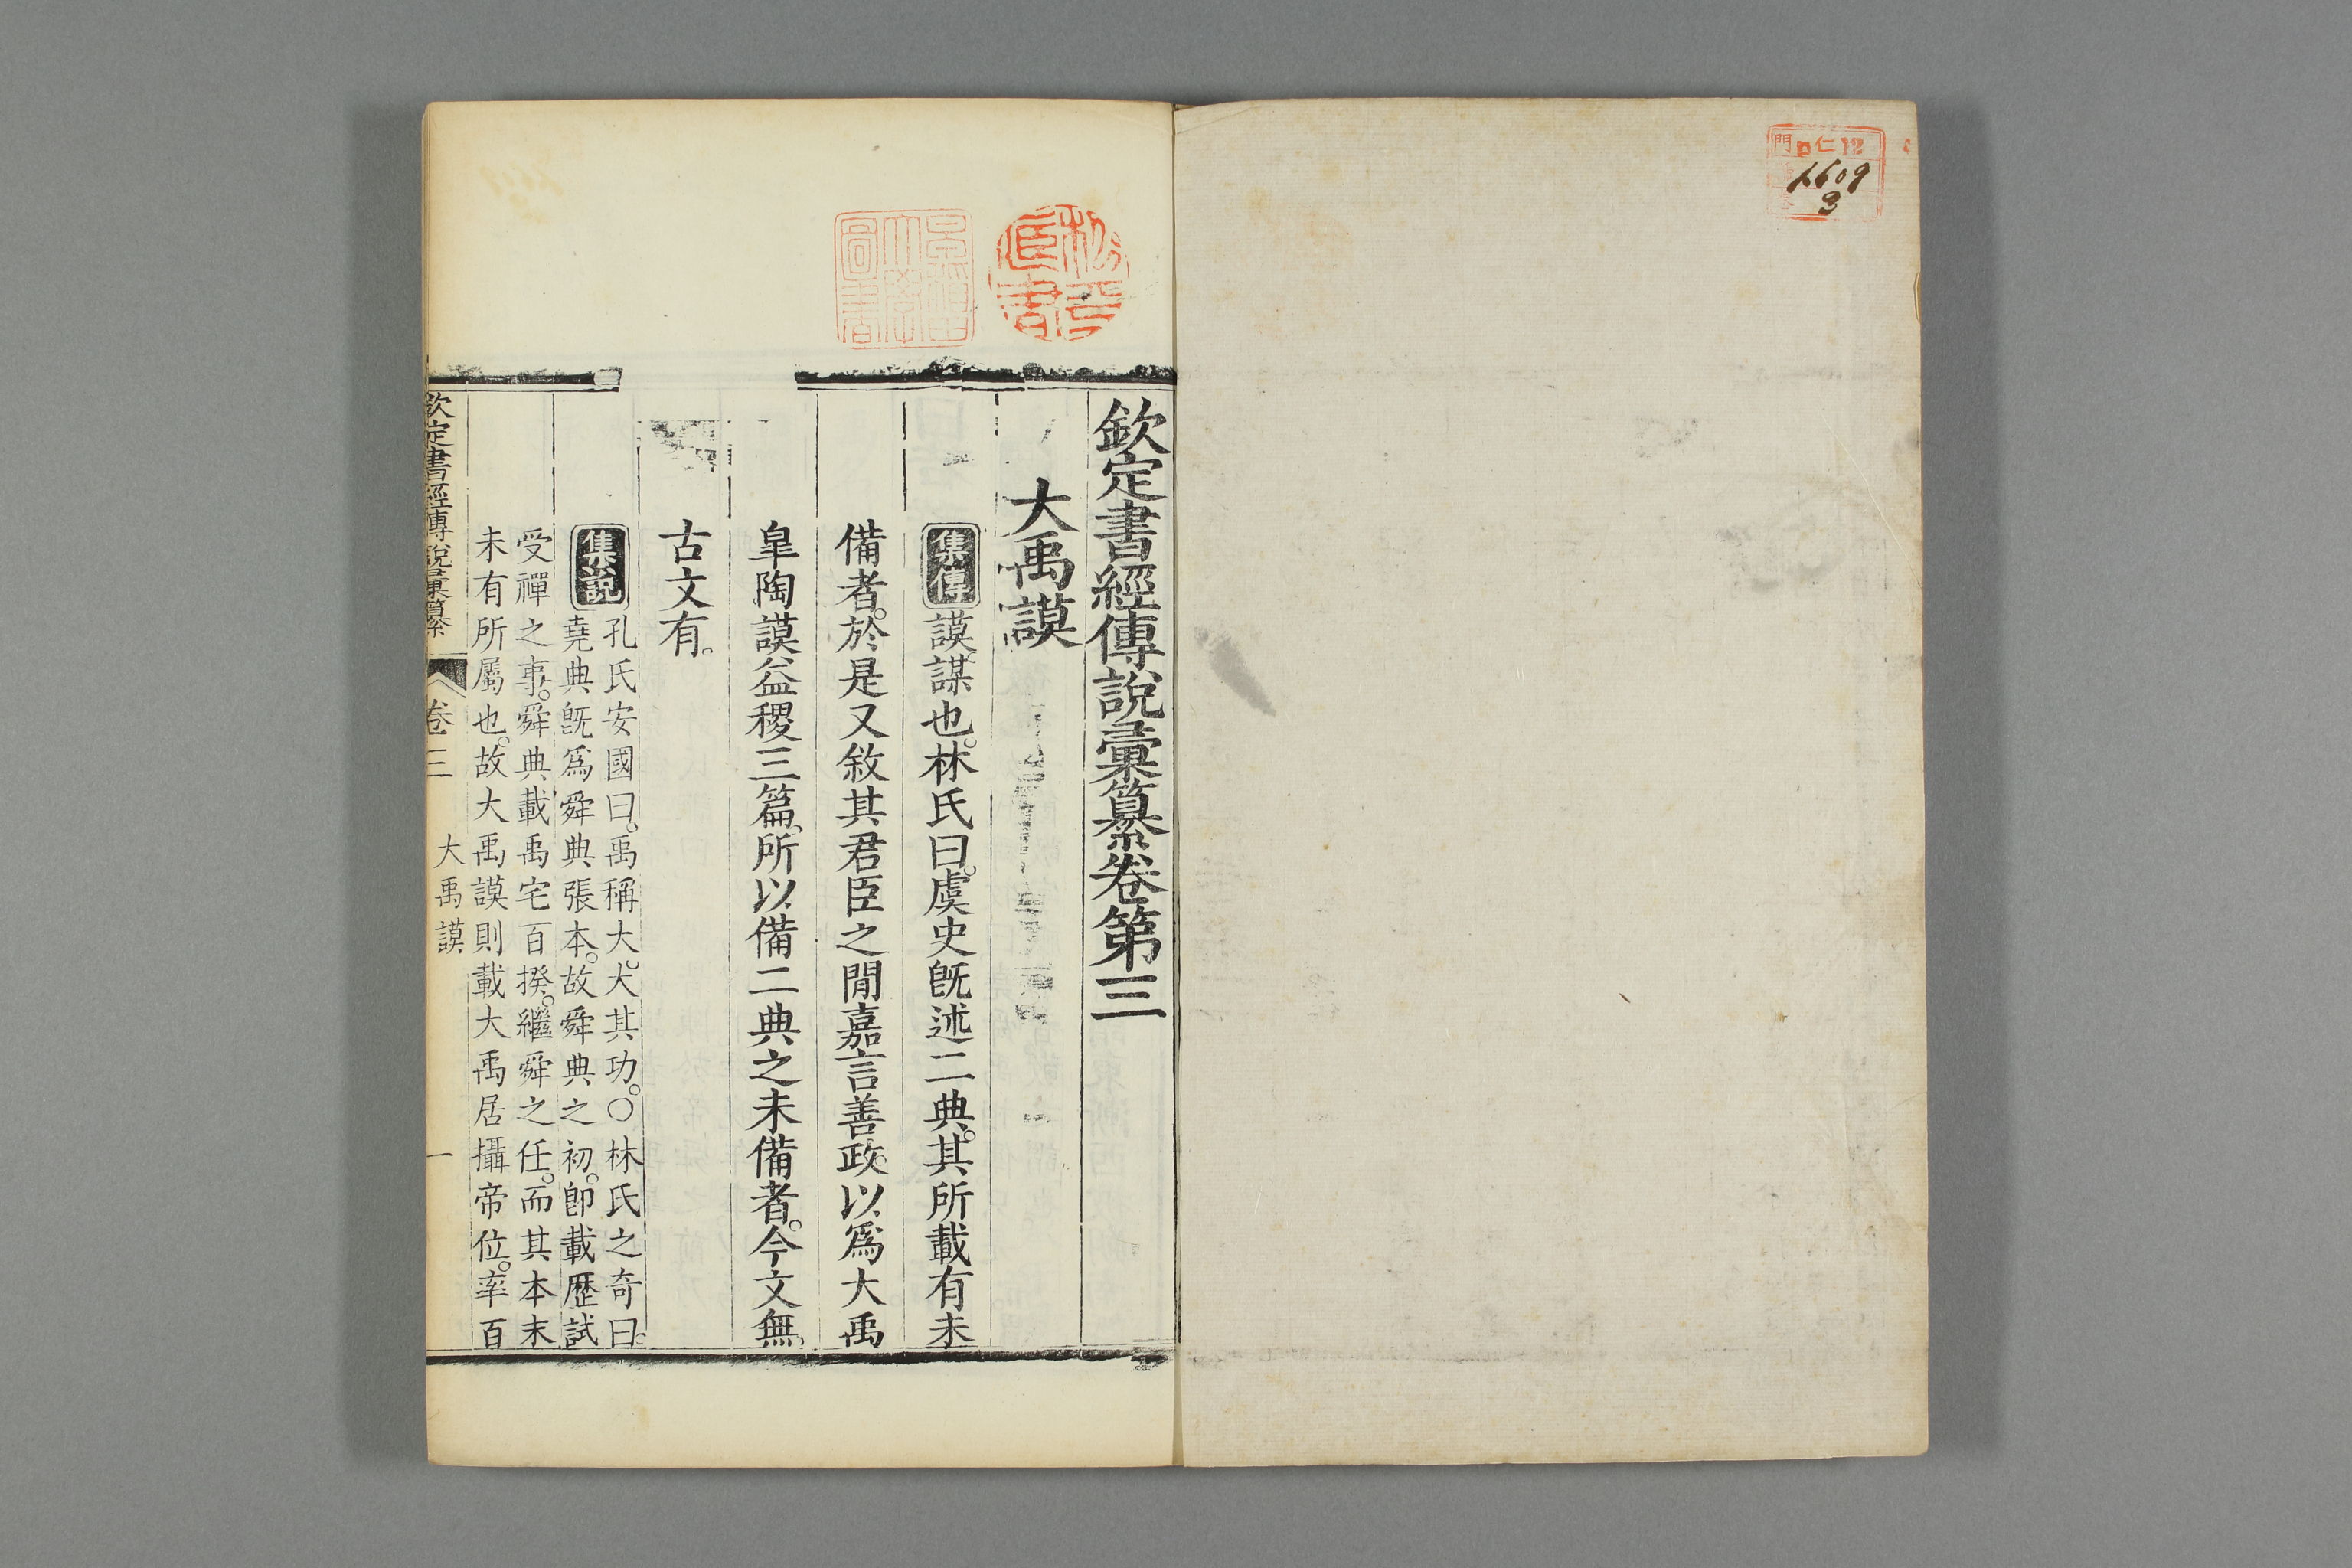 門 ロ 仁 12
6609
3
欽定書經傳說彙纂卷第三
大禹謨
集傳 謨謀也。林氏曰。虞史旣述二典。其所載有未
備者。於是又敘其君臣之閒嘉言善政。以爲大禹
皐陶謨益稷三篇。所以備二典之未備者。今文無。
古文有。
集說 孔氏安國曰。禹稱大。大其功。○林氏之奇曰。
堯典旣爲舜典張本。故舜典之初。卽載歷試
受禪之事。舜典載禹宅百揆。繼舜之任。而其本末
未有所屬也。故大禹謨則載大禹居攝帝位。率百
欽定書經傳說彙纂 卷三 大禹謨 一